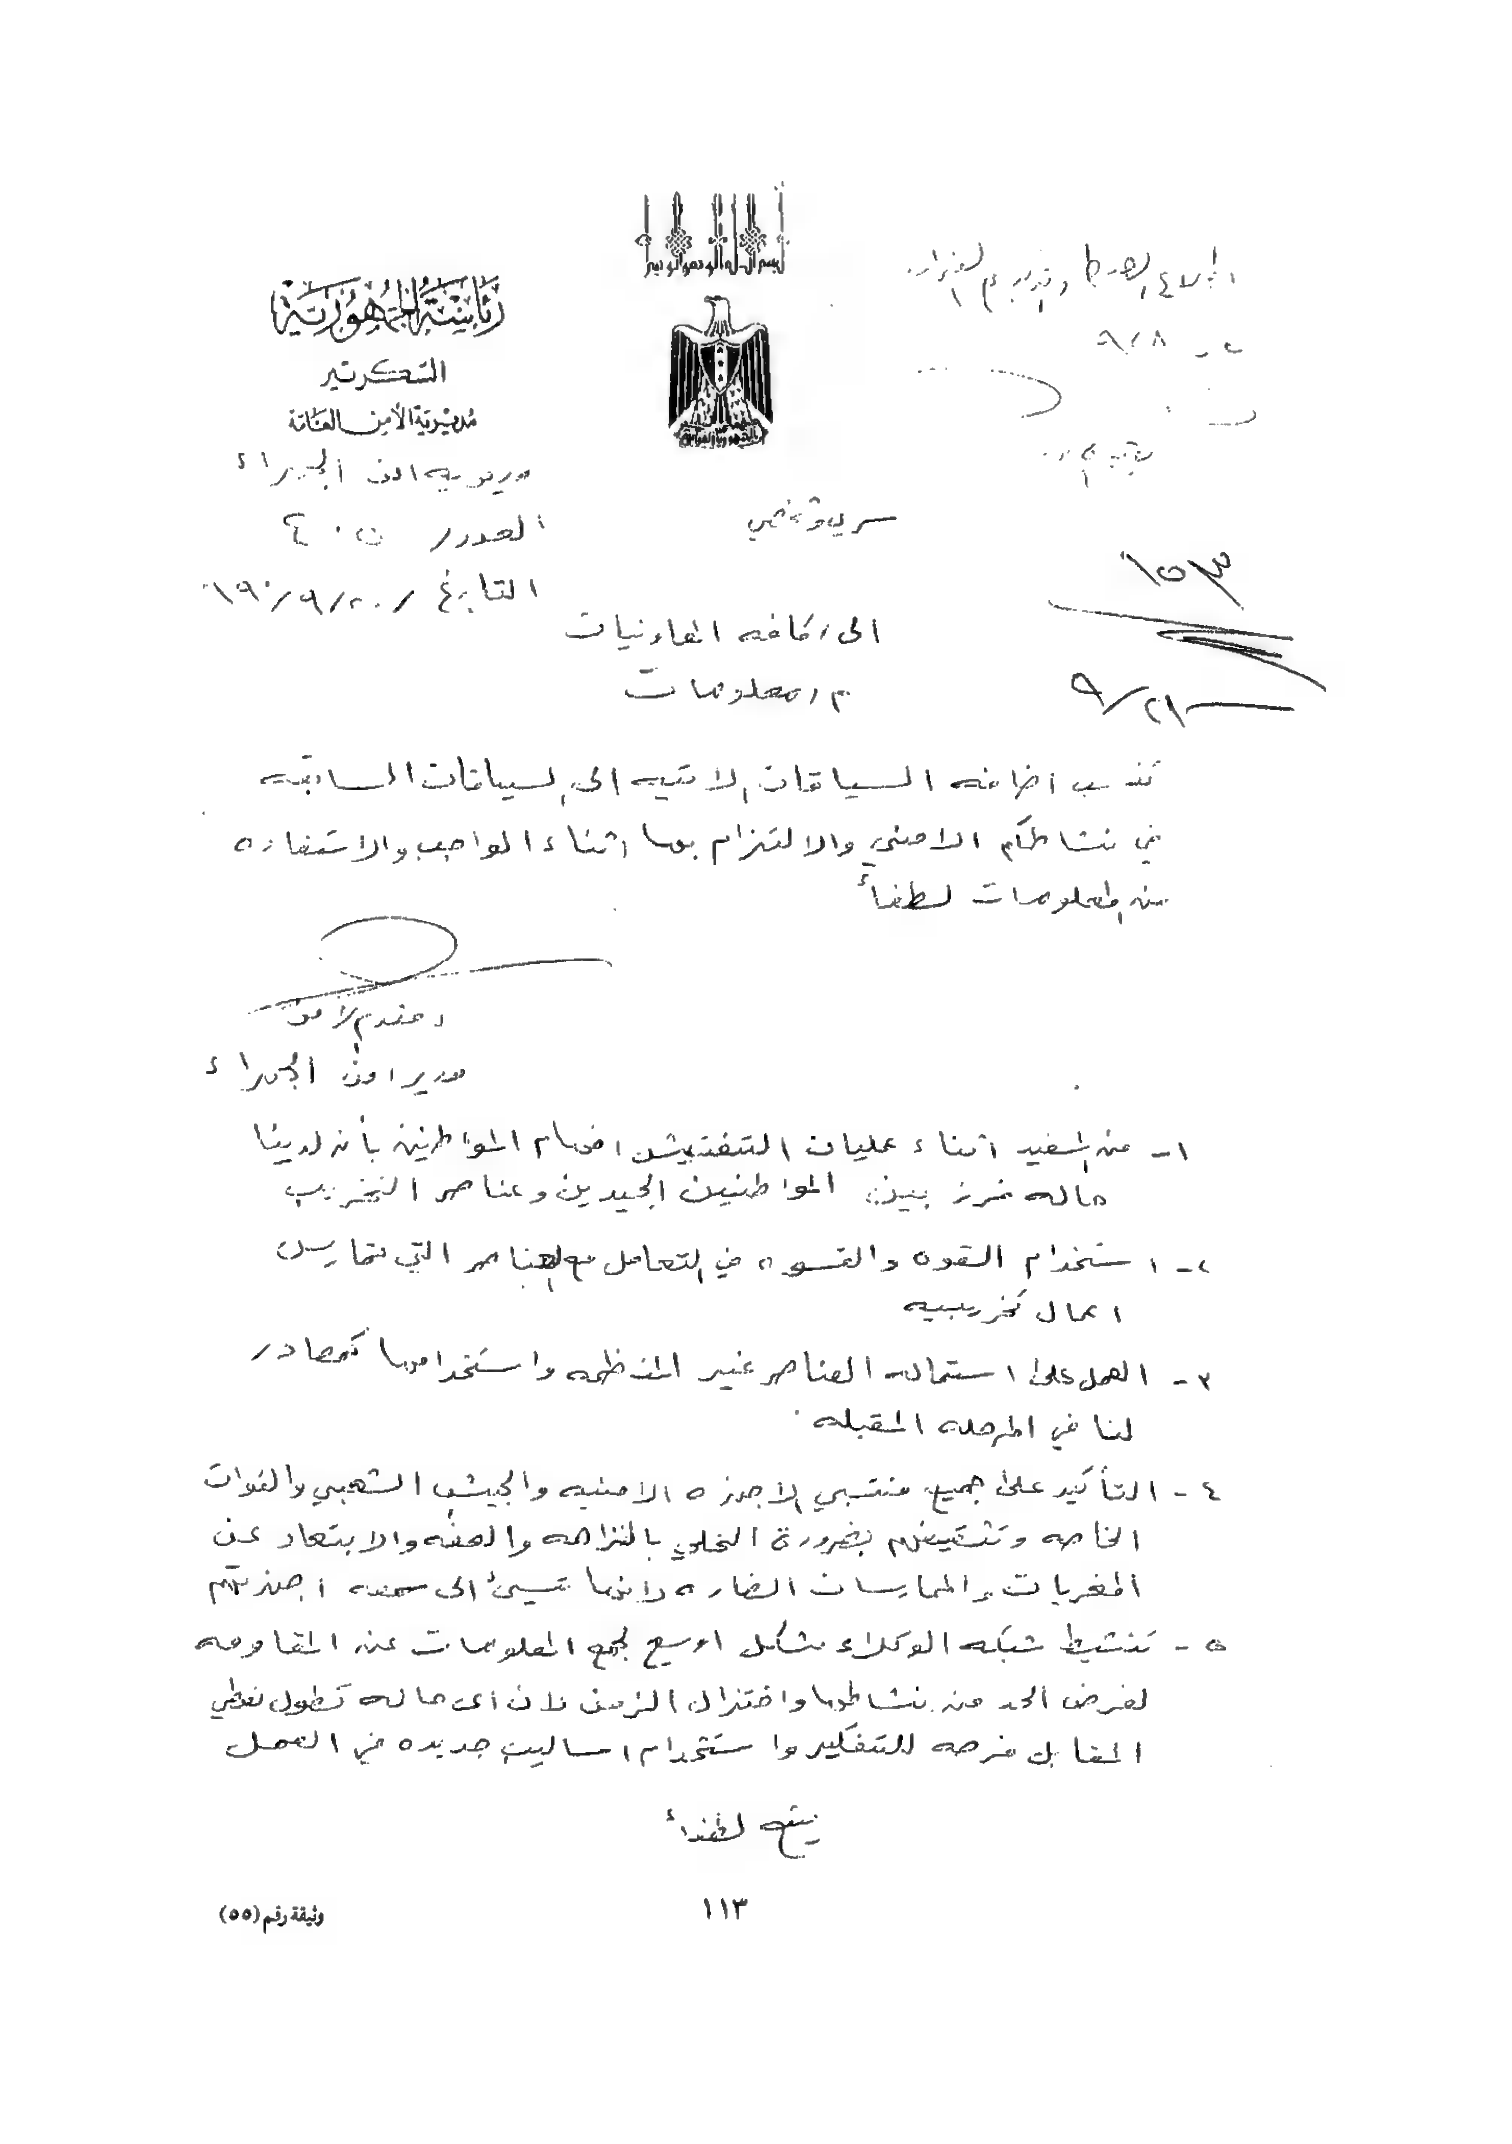 بسم الله الرحمن الرحيم
رئاسة الجمهورية
السكرتير
مديرية الأمن العامة
مديرية امن الجهراء
العدد / ٤٠٥
التاريخ / ٢٠ / ٩ / ١٩٩٠
سري وشخصي
٩/٨
١٥٣
٩/٢١
الى / كافه المعاونيات
م / معلومات
ننسب اضافه السياقات الاتيه الى السياقات السابقه
في نشاطكم الامني والالتزام بها اثناء الواجب والاستفاده
من المعلومات لطفاً
مقدم الامن
مدير امن الجهراء
١- من المفيد اثناء عمليات التفتيش افهام المواطنين بأن لدينا
حاله فرز بين المواطنين الجيدين وعناصر التخريب
٢- استخدام القوه والقسوه في التعامل مع العناصر التي تمارس
اعمال تخريبيه
٣- العمل على استماله العناصر غير المنظمه واستخدامها كمصادر
لنا في المرحله المقبله
٤- التأكيد على جميع منتسبي الاجهزه الامنيه والجيش الشعبي والقوات
الخاصه وتثقيفهم بضرورة التحلي بالنزاهه والعفه والابتعاد عن
المغريات والممارسات الضاره وانها تسيئ الى سمعه اجهزتهم
٥- تنشيط شبكه الوكلاء بشكل اوسع لجمع المعلومات عن المقاومه
لغرض الحد من نشاطها واختزال الزمن لان اى حاله تطول تعطي
المقابل فرصه للتفكير واستخدام اساليب جديده في العمل
يتبع لطفاً
١١٣
وثيقة رقم (٥٥)